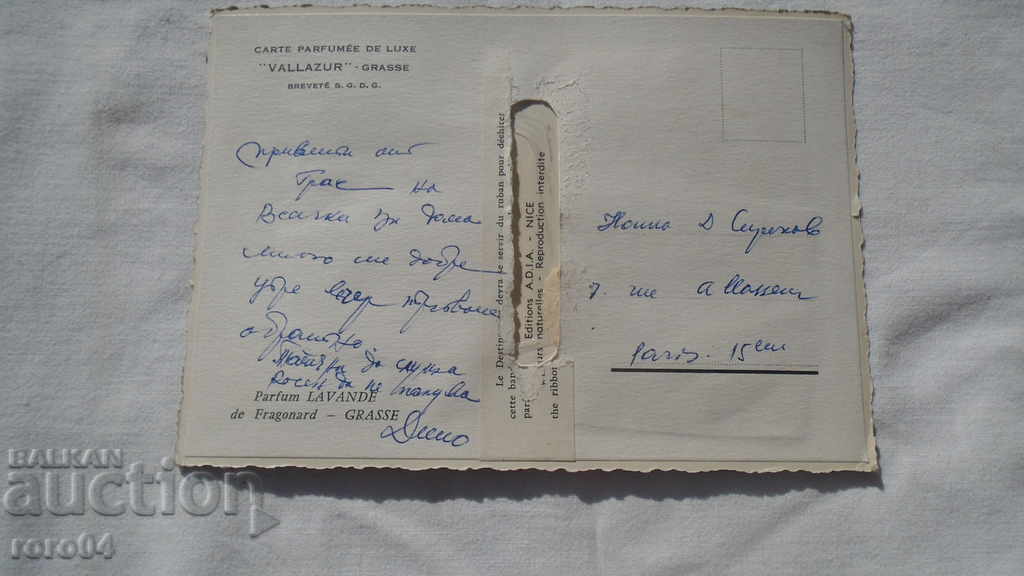 CARTE PARFUMÉE DE LUXE
"VALLAZUR" - GRASSE
BREVETÉ S. G. D. G.
привети от
Грас на
Всички в дома
много ше добре
утре вечер тръгваме
обратно
да слуша
да не
Дино
Parfum LAVANDE
de Fragonard – GRASSE
Le Destin devra se servir du ruban pour déchirer
cette ban
par
the ribbon
Editions A.D.I.A. - NICE
urs naturelles - Reproduction interdite
Нонна Д
7. rue
Paris. 15em
BALKAN
auction
roro04